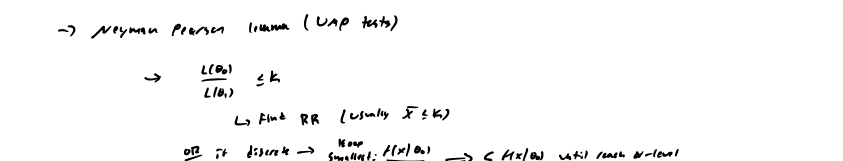 → Neyman Pearson lemma (UMP tests)
→ L(θ₀) / L(θ₁) ≤ k
↳ Find RR (usually x̄ ≤ k)
OR if discrete → keep smallest: f(x|θ₀) → ≤ f(x|θ₀) until reach α-level